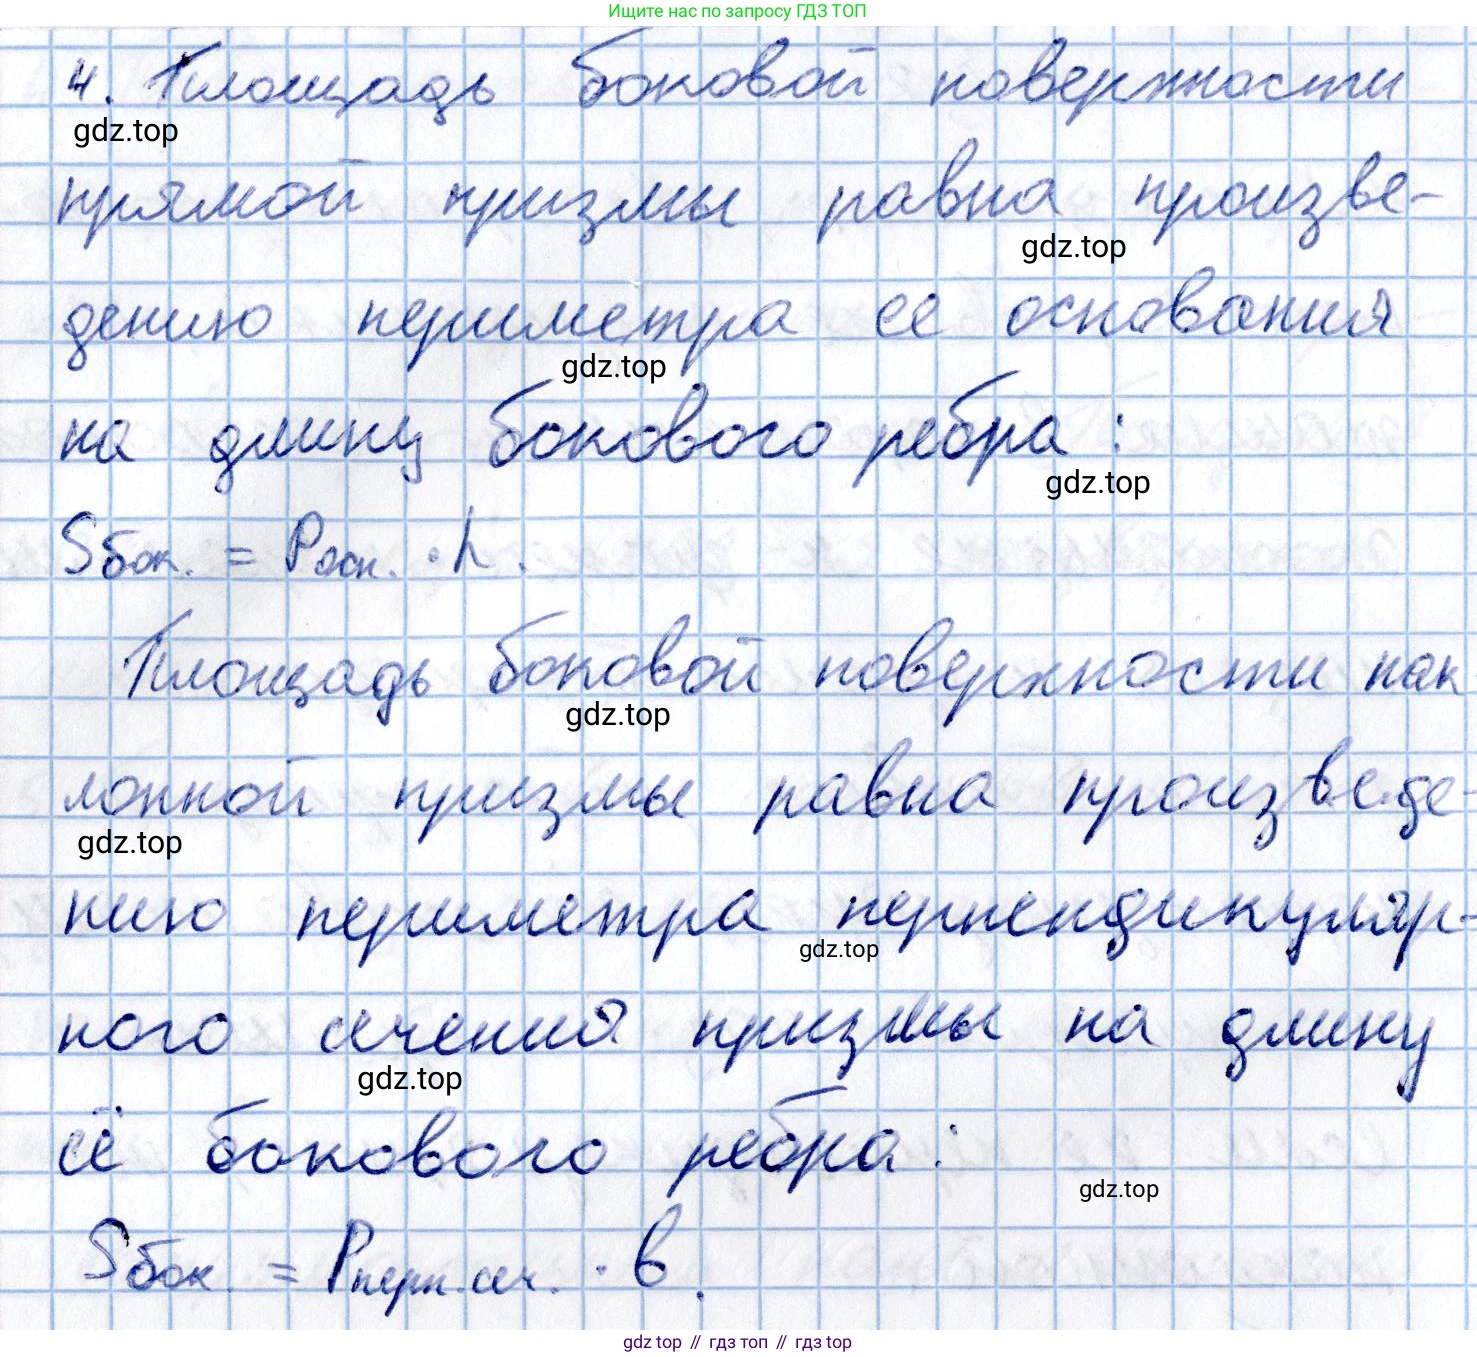 Ищите нас по запросу ГДЗ ТОП
4. Площадь боковой поверхности
gdz.top
прямой призмы равна произве-
gdz.top
дению периметра ее основания
gdz.top
на длину бокового ребра:
gdz.top
Sбок. = Pосн. · h.
Площадь боковой поверхности нак-
gdz.top
лонной призмы равна произведе-
gdz.top
нию периметра перпендикуляр-
gdz.top
ного сечения призмы на длину
gdz.top
её бокового ребра:
gdz.top
Sбок. = Pперп.сеч. · b.
gdz.top // гдз топ // гдз top